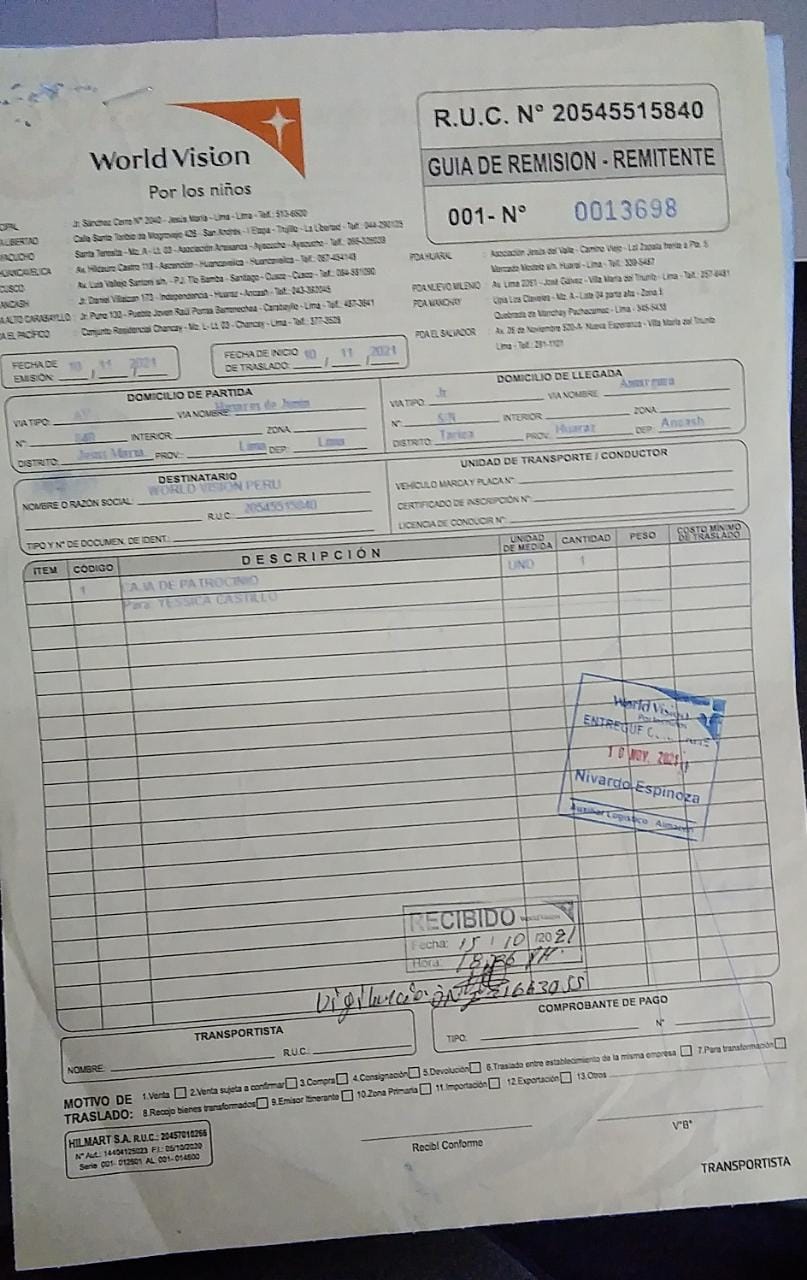 World Vision
Por los niños
R.U.C. N° 20545515840
GUIA DE REMISION - REMITENTE
001- N° 0013698
Jr. Sánchez Cerro N° 2040 - Jesús María - Lima - Lima - Telf.: 513-6500
Calle Santo Toribio de Mogrovejo 426 - San Andrés - I Etapa - Trujillo - La Libertad - Telf.: 044-290125
Santa Teresita - Mz. A - Lt. 03 - Asociación Artesanos - Ayacucho - Ayacucho - Telf.:
HUANCAVELICA Av. Hildauro Castro 118 - Ascención - Huancavelica - Huancavelica - Telf.: 067-454143
CUSCO Av. Luis Vallejo Santoni s/n. - P.J. Tío Bamba - Santiago - Cusco - Cusco - Telf.: 084-581090
Jr. Daniel Villaizan 173 - Independencia - Huaraz - Ancash - Telf.:
ALTO CARABAYLLO: Jr. Puno 130 - Pueblo Joven Raúl Porras Barrenechea - Carabayllo - Lima - Telf.: 487-3641
EL PACÍFICO: Conjunto Residencial Chancay - Mz. L - Lt. 03 - Chancay - Lima - Telf.: 377-3528
PDA HUARAL : Asociación Jesús del Valle - Camino Viejo - Lol Zapata frente a Pta. 5
Mercado Modelo s/n. Huaral - Lima - Telf.: 339-5487
PDA NUEVO MILENIO : Av. Lima 2051 - José Gálvez - Villa María del Triunfo - Lima - Telf.:
PDA MANCHAY : Upis Los Claveles - Mz. A - Lote 04 parte alta - Zona E
Quebrada de Manchay Pachacamac - Lima - 345-5438
PDA EL SALVADOR : Av. 26 de Noviembre 520-A Nueva Esperanza - Villa María del Triunfo
Lima - Telf.: 291-1101
FECHA DE EMISIÓN: 10 / 11 / 2021
FECHA DE INICIO DE TRASLADO: 10 / 11 / 2021
DOMICILIO DE PARTIDA
VIA TIPO: AV. VIA NOMBRE: Manzares de Junin
N°: INTERIOR: ZONA:
DISTRITO: Jesus Maria PROV.: Lima DEP.: Lima
DOMICILIO DE LLEGADA
VIA TIPO: Jr VIA NOMBRE: Amargura
N°: S/N INTERIOR: ZONA:
DISTRITO: Tarica PROV.: Huaraz DEP.: Ancash
DESTINATARIO
NOMBRE O RAZÓN SOCIAL: WORLD VISION PERU
R.U.C.: 20545515840
TIPO Y N° DE DOCUMEN. DE IDENT.:
UNIDAD DE TRANSPORTE / CONDUCTOR
VEHÍCULO MARCA Y PLACA N°:
CERTIFICADO DE INSCRIPCIÓN N°:
LICENCIA DE CONDUCIR N°:
ITEM CÓDIGO DESCRIPCIÓN UNIDAD DE MEDIDA CANTIDAD PESO COSTO MÍNIMO DE TRASLADO
1 CAJA DE PATROCINIO UND 1
Para: YESSICA CASTILLO
World Vision
ENTREGUE
10 NOV. 2021
Nivardo Espinoza
Auxiliar Logistico Almacén
RECIBIDO
Fecha: 15 / 10 / 2021
Hora:
Vigilancia
TRANSPORTISTA
NOMBRE: R.U.C.:
COMPROBANTE DE PAGO
TIPO: N°
MOTIVO DE TRASLADO: 1.Venta 2.Venta sujeta a confirmar 3.Compra 4.Consignación 5.Devolución 6.Traslado entre establecimiento de la misma empresa 7.Para transformación
8.Recojo bienes transformados 9.Emisor Itinerante 10.Zona Primaria 11.Importación 12.Exportación 13.Otros
HILMART S.A. R.U.C.: 20457010266
N° Aut.: 14404125023 F.I.: 05/10/2020
Serie 001- 012501 AL 001-014500
Recibí Conforme
V°B°
TRANSPORTISTA